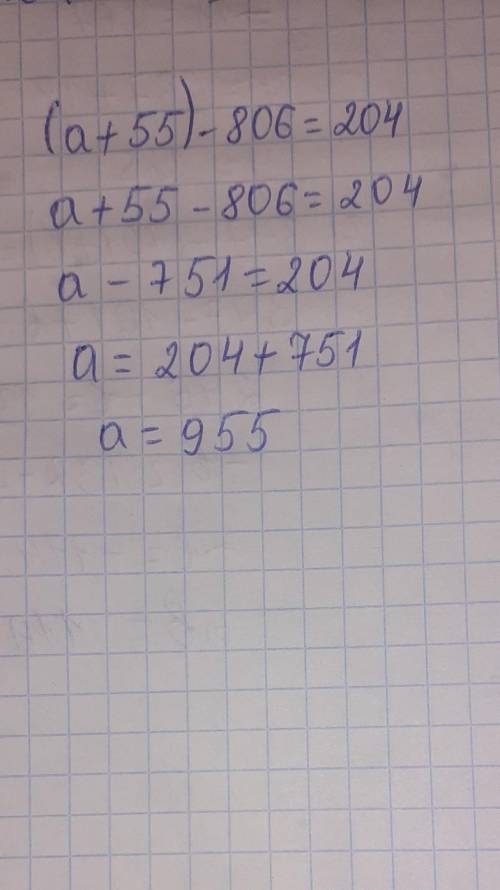 (a+55)-806=204
a+55-806=204
a-751=204
a=204+751
a=955